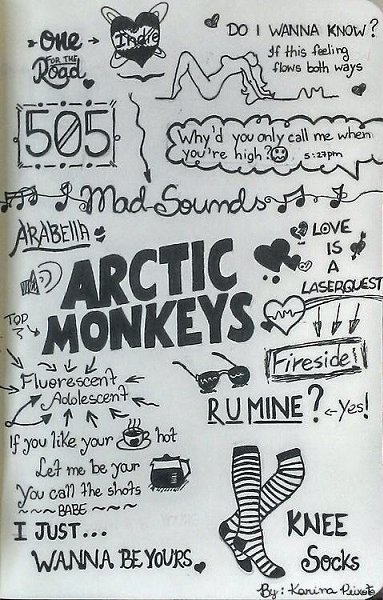 One
FOR THE
Road
Indie
DO I WANNA KNOW?
If this feeling
flows both ways
505
Why'd you only call me when
you're high?
5:27pm
Mad Sounds
ARABELLA
LOVE
IS
A
LASERQUEST
ARCTIC
MONKEYS
TOP
3
Fireside!
Fluorescent
Adolescent
R U MINE? ←Yes!
If you like your hot
Let me be your
You call the shots
~~BABE~~~
I JUST...
WANNA BE YOURS
KNEE
Socks
By: Karina Peixoto